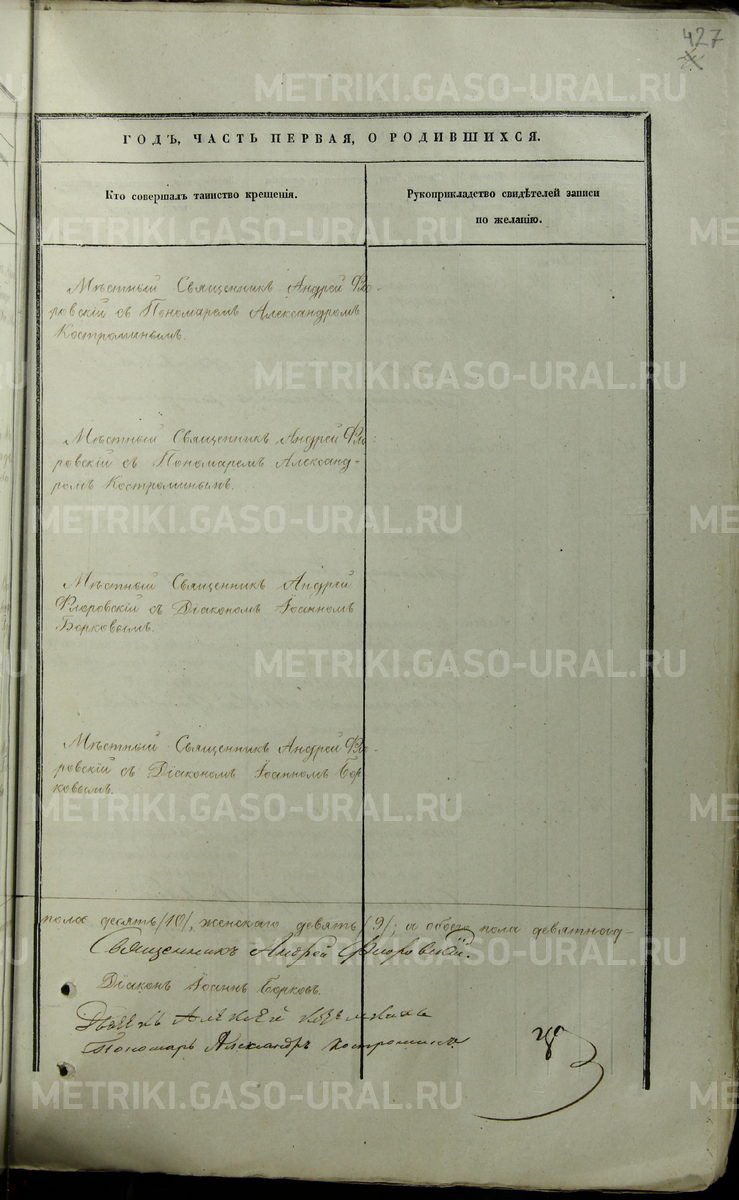 427
ГОДЪ, ЧАСТЬ ПЕРВАЯ, О РОДИВШИХСЯ.
Кто совершалъ таинство крещенія.
Рукоприкладство свидѣтелей записи
по желанію.
Мѣстный Священникъ Андрей Фло-
ровскій съ Пономаремъ Александромъ
Костроминымъ.
Мѣстный Священникъ Андрей Фло-
ровскій съ Пономаремъ Александ-
ромъ Костроминымъ.
Мѣстный Священникъ Андрей
Флоровскій съ Діакономъ Іоанномъ
Борковымъ.
Мѣстный Священникъ Андрей Фло-
ровскій съ Діакономъ Іоанномъ Бор
ковымъ.
пола десять /10/, женскаго девять /9/; а обоего пола девятнад-
Священникъ Андрей Флоровскій.
Діаконъ Іоаннъ Борковъ.
Алексѣй
Пономарь Александръ Костроминъ
METRIKI.GASO-URAL.RU